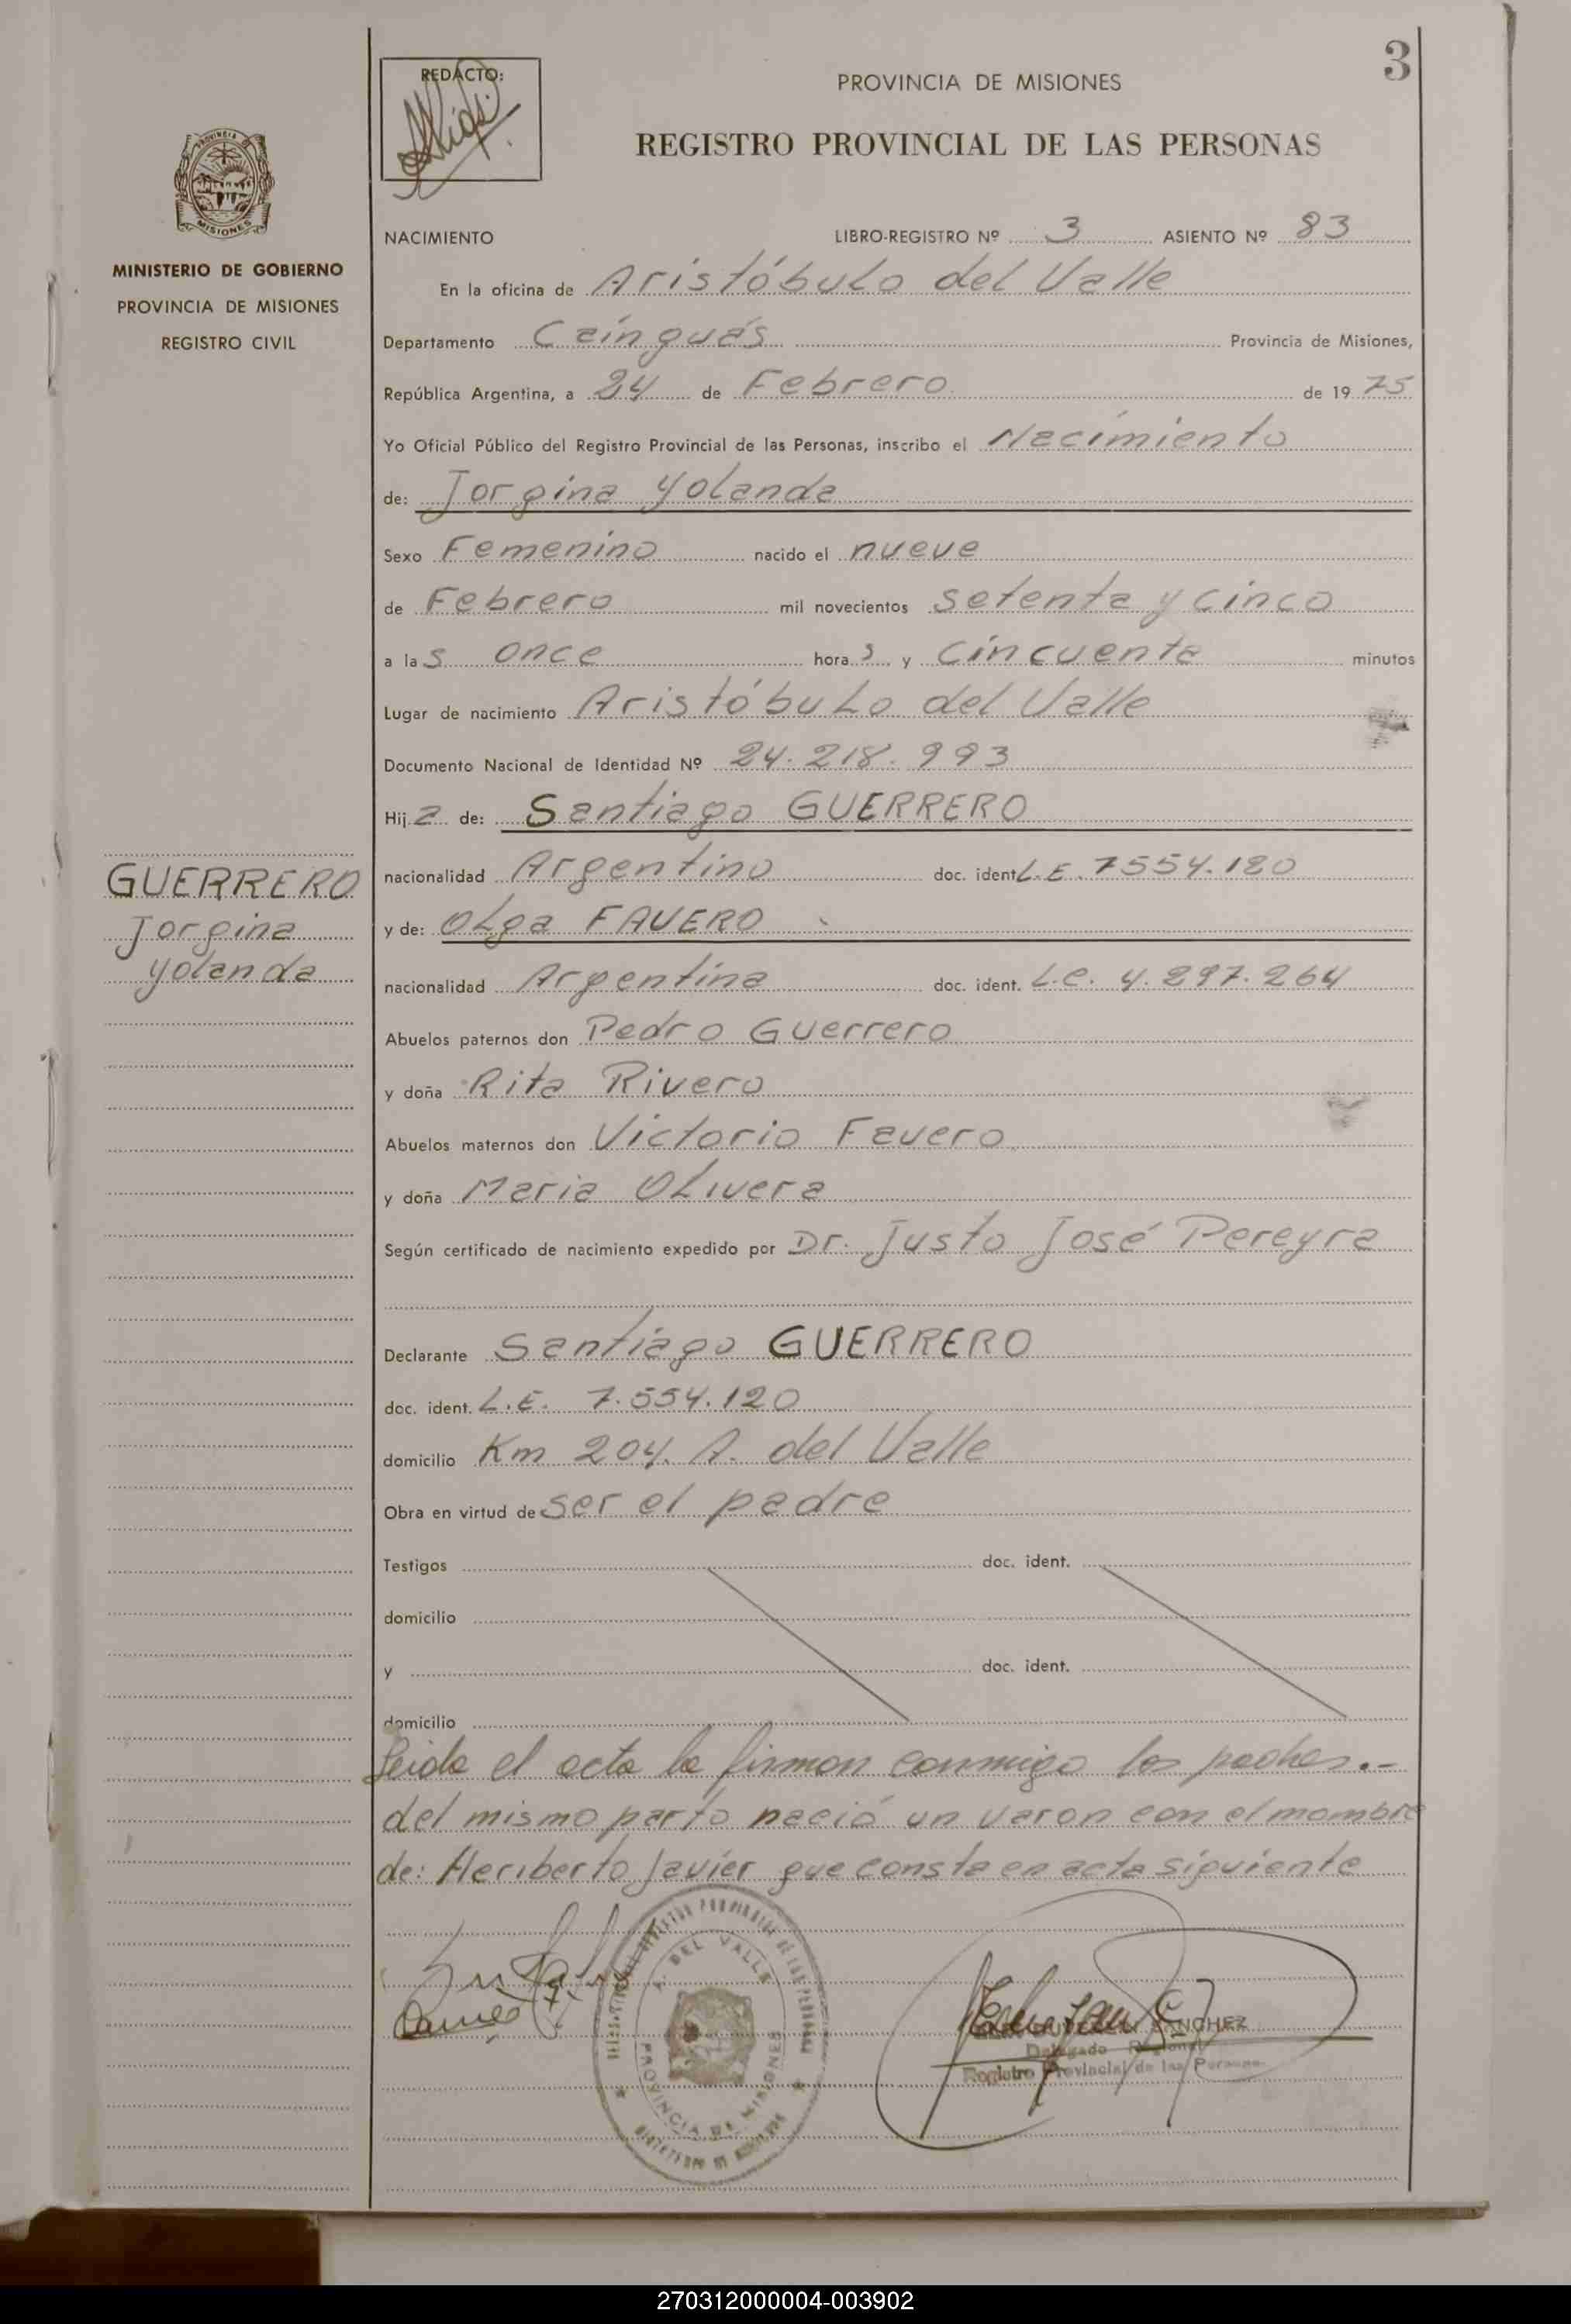 3
REDACTO:
PROVINCIA DE MISIONES
REGISTRO PROVINCIAL DE LAS PERSONAS
PROVINCIA
MISIONES
MINISTERIO DE GOBIERNO
PROVINCIA DE MISIONES
REGISTRO CIVIL
NACIMIENTO LIBRO-REGISTRO Nº 3 ASIENTO Nº 83
En la oficina de Aristóbulo del Valle
Departamento Cainguás Provincia de Misiones,
República Argentina, a 24 de Febrero de 1975
Yo Oficial Público del Registro Provincial de las Personas, inscribo el Nacimiento
de: Jorgina Yolanda
Sexo Femenino nacido el nueve
de Febrero mil novecientos setenta y cinco
a las once horas y cincuenta minutos
Lugar de nacimiento Aristóbulo del Valle
Documento Nacional de Identidad Nº 24.218.993
Hija de: Santiago GUERRERO
GUERRERO
Jorgina
Yolanda
nacionalidad Argentino doc. ident. L.E. 7554.120
y de: Olga FAVERO
nacionalidad Argentina doc. ident. L.C. 4.297.264
Abuelos paternos don Pedro Guerrero
y doña Rita Rivero
Abuelos maternos don Victorio Favero
y doña Maria Olivera
Según certificado de nacimiento expedido por Dr. Justo José Pereyra
Declarante Santiago GUERRERO
doc. ident. L.E. 7.554.120
domicilio Km 204. A. del Valle
Obra en virtud de ser el padre
Testigos doc. ident.
domicilio
y doc. ident.
domicilio
Leida el acta la firman conmigo los padres.-
del mismo parto nació un varon con el mombre
de: Heriberto Javier que consta en acta siguiente
A. DEL VALLE
PROVINCIA DE MISIONES
SANCHEZ
Delegado Regional
Registro Provincial de las Personas
270312000004-003902